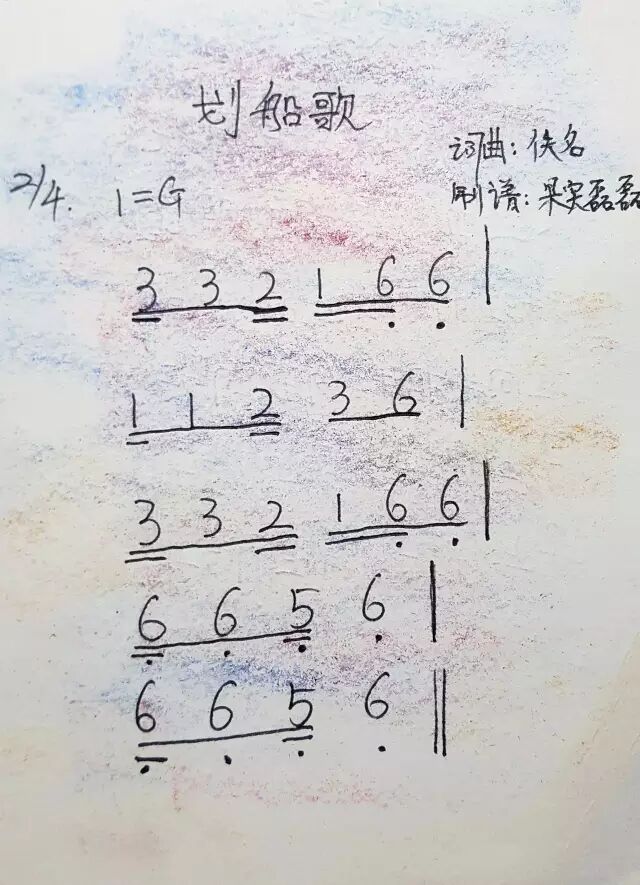 划船歌
词曲：佚名
2/4. 1=G
制谱：果实磊磊
3 3 2 1 6 6 |
1 1 2 3 6 |
3 3 2 1 6 6 |
6 6 5 6 |
6 6 5 6 ||